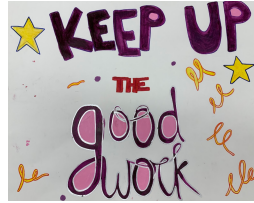 KEEP UP
THE
good
work